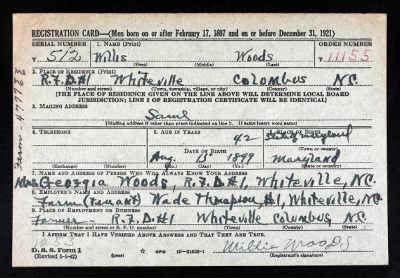 REGISTRATION CARD—(Men born on or after February 17, 1897 and on or before December 31, 1921)
SERIAL NUMBER 1. NAME (Print) ORDER NUMBER
T 512 Willis Woods T 11155
(First) (Middle) (Last)
2. PLACE OF RESIDENCE (Print)
R.F.D.#1 Whiteville Columbus N.C.
(Number and street) (Town, township, village, or city) (County) (State)
[THE PLACE OF RESIDENCE GIVEN ON THE LINE ABOVE WILL DETERMINE LOCAL BOARD
JURISDICTION; LINE 2 OF REGISTRATION CERTIFICATE WILL BE IDENTICAL]
3. MAILING ADDRESS
Same
(Mailing address if other than place indicated on line 2. If same insert word same)
4. TELEPHONE 5. AGE IN YEARS 6. PLACE OF BIRTH
42 State of maryland
DATE OF BIRTH (Town or county)
Aug. 15 1899 Maryland
(Exchange) (Number) (Mo.) (Day) (Yr.) (State or country)
7. NAME AND ADDRESS OF PERSON WHO WILL ALWAYS KNOW YOUR ADDRESS
Mrs Georgia Woods, R.F.D.#1, Whiteville, N.C.
8. EMPLOYER'S NAME AND ADDRESS
Farm (Tenant) Wade Thompson, #1, Whiteville, N.C.
9. PLACE OF EMPLOYMENT OR BUSINESS
R.F.D.#1 Whiteville Columbus, N.C.
(Number and street or R. F. D. number) (Town) (County) (State)
I AFFIRM THAT I HAVE VERIFIED ABOVE ANSWERS AND THAT THEY ARE TRUE.
D. S. S. Form 1
(Revised 1-1-42) (over) GPO 16—21630-1
Willie Woods